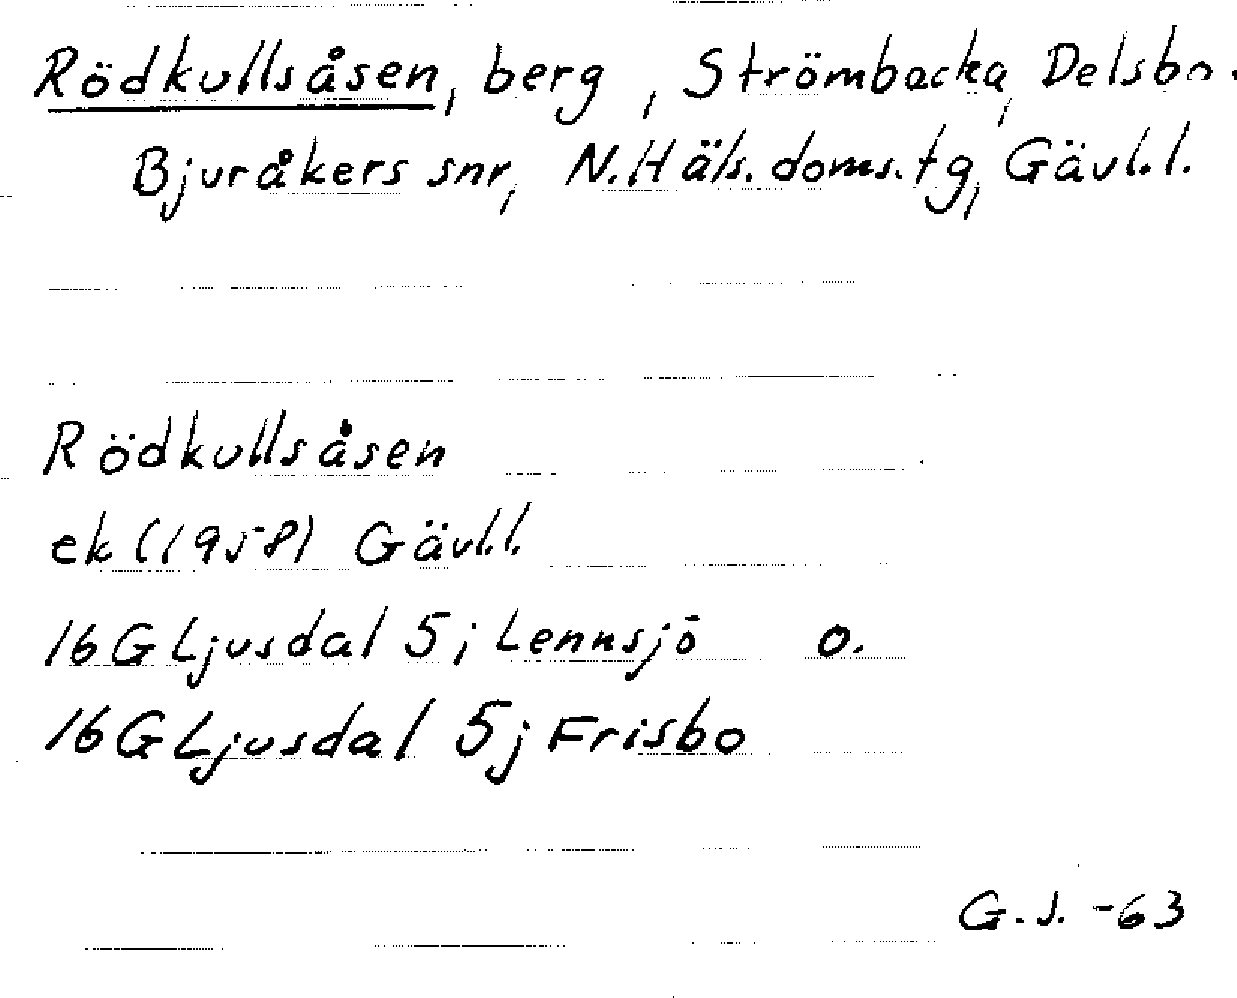 Rödkullsåsen, berg, Strömbacka, Delsbo.
Bjuråkers snr, N. Häls. doms. tg, Gävl.l.
Rödkullsåsen
ek (1958) Gävl.l.
16G Ljusdal 5j Lennsjö o.
16G Ljusdal 5j Frisbo
G.J. -63